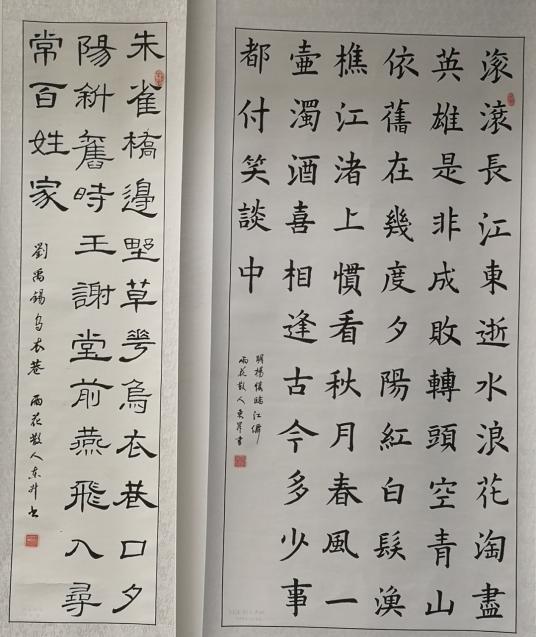 滚滚長江東逝水浪花淘盡
英雄是非成敗轉頭空青山
依舊在幾度夕陽紅白髮漁
樵江渚上慣看秋月春風一
壺濁酒喜相逢古今多少事
都付笑談中
明楊慎臨江僊
雨花散人東昇書
朱雀橋邊野草花烏衣巷口夕
陽斜舊時王謝堂前燕飛入尋
常百姓家
劉禹錫烏衣巷 雨花散人东升书